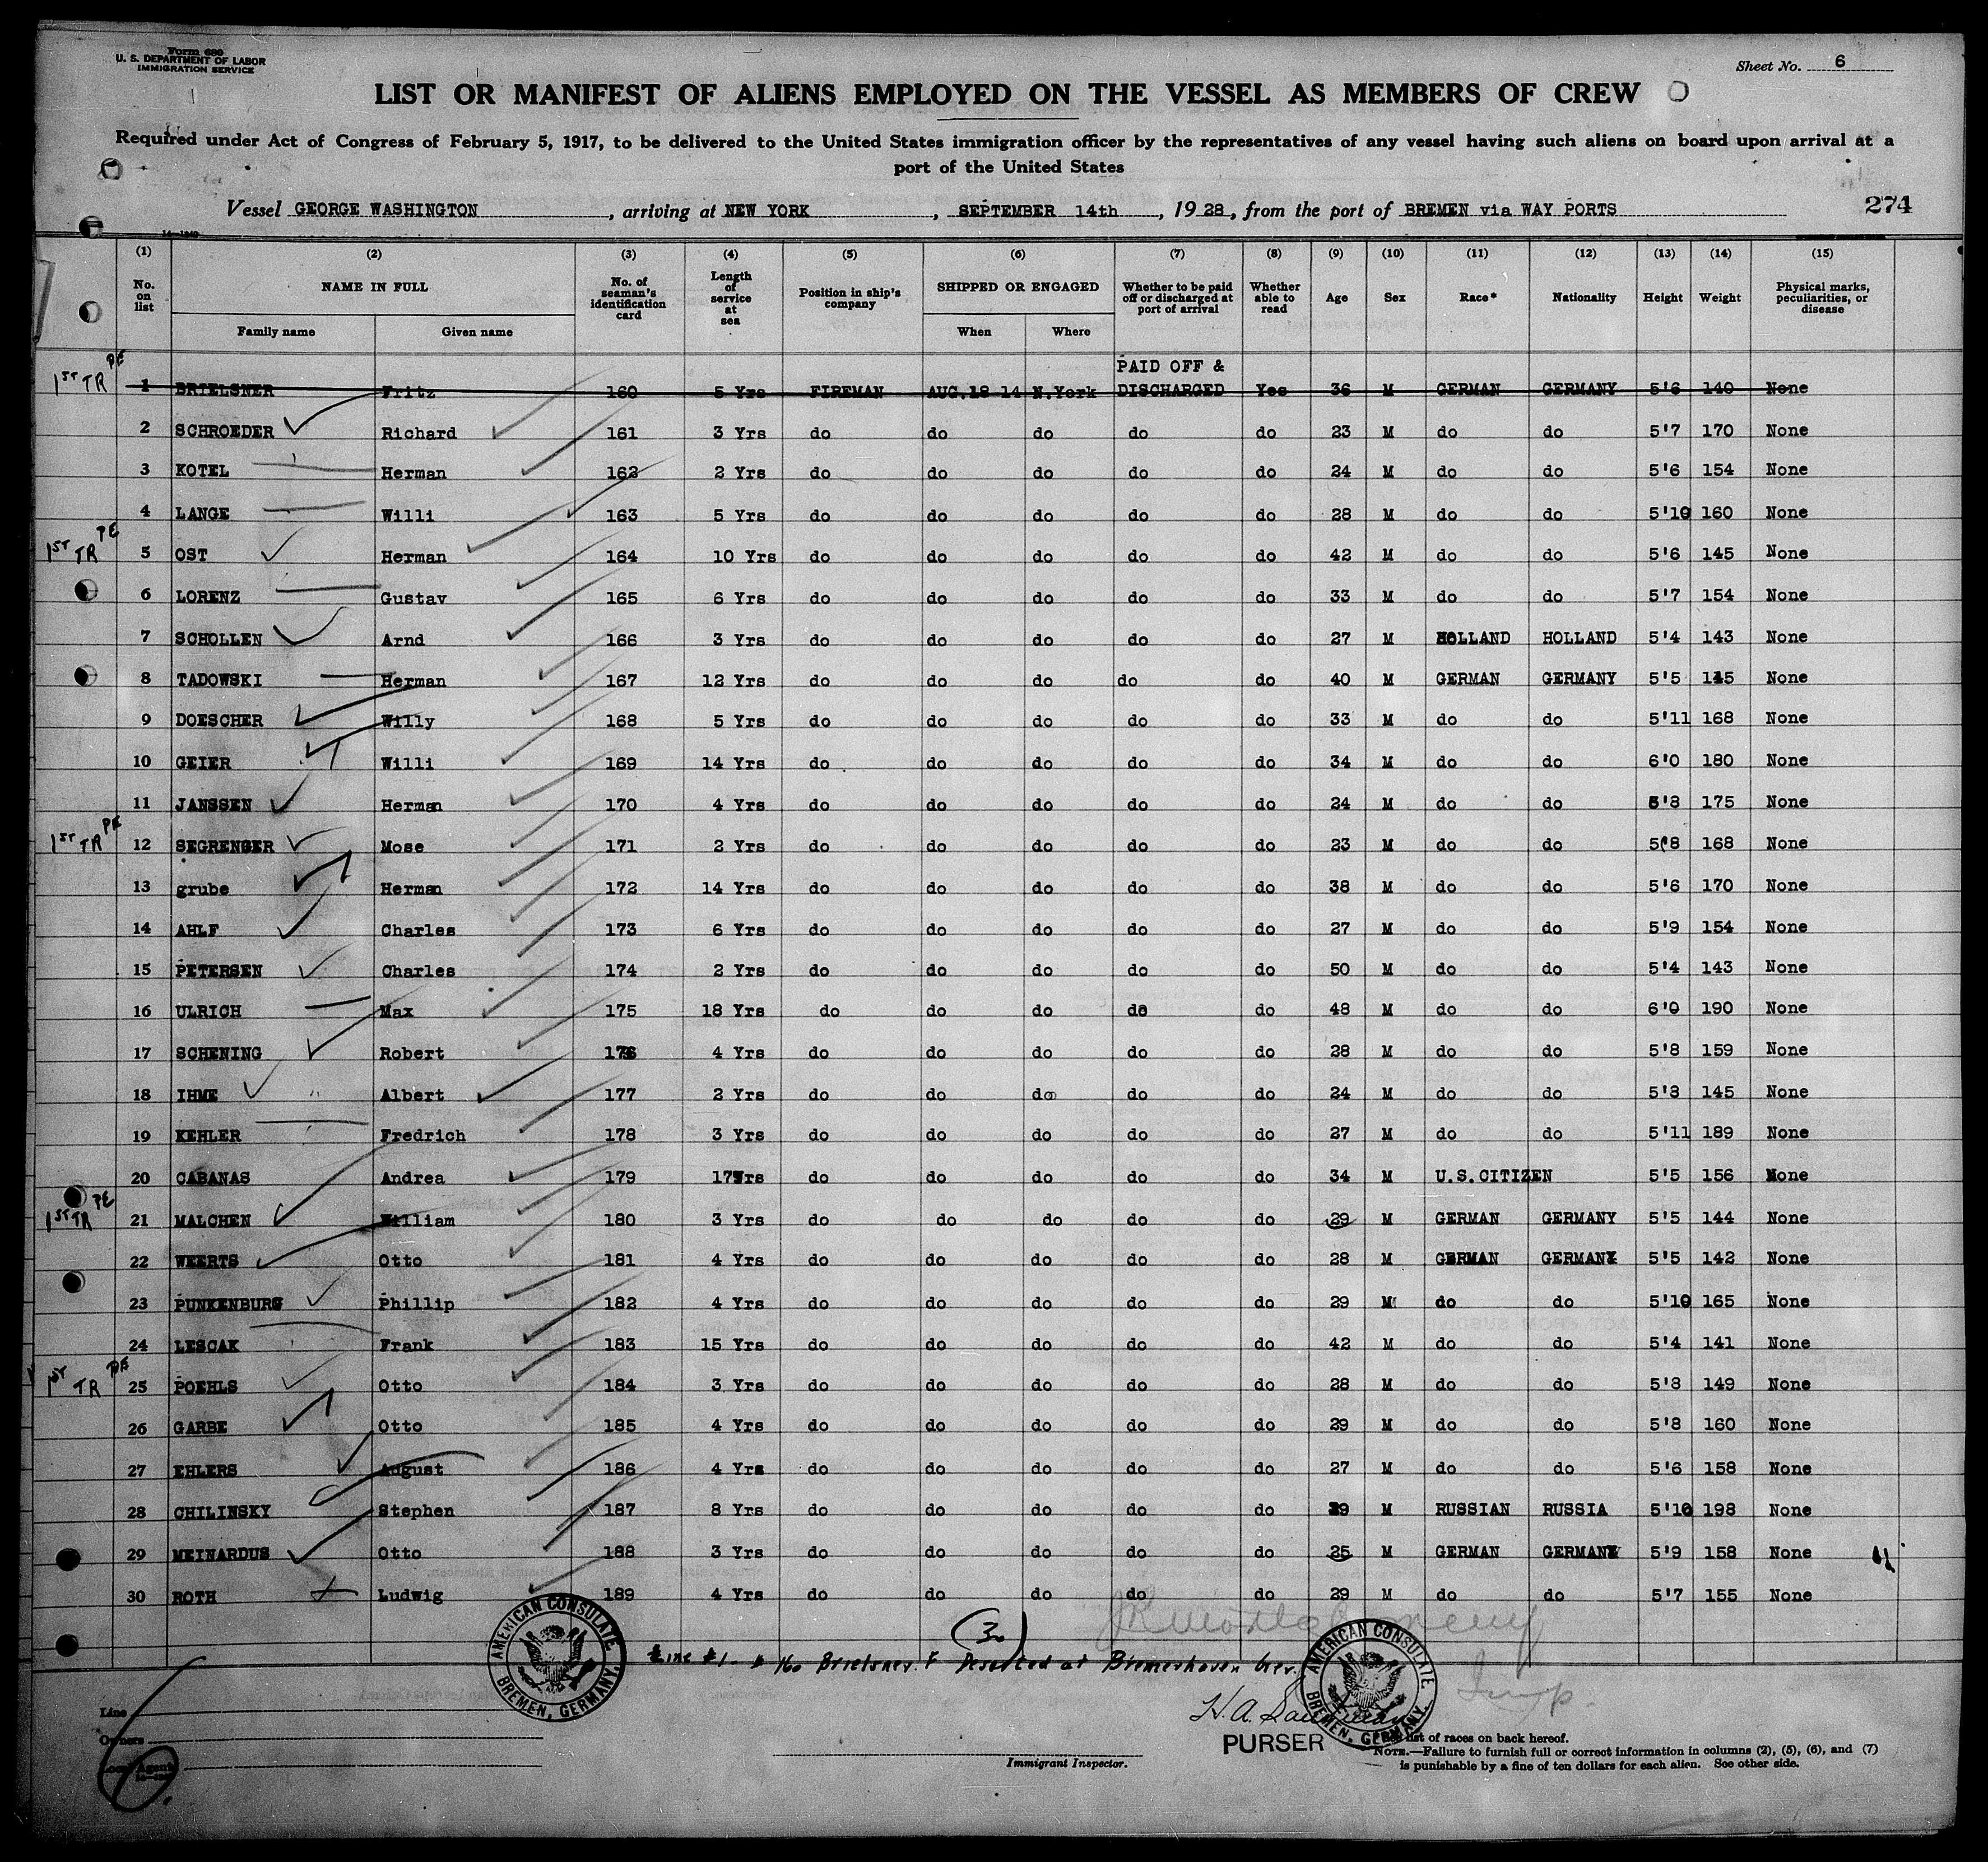 Form 680
U. S. DEPARTMENT OF LABOR
IMMIGRATION SERVICE
Sheet No. 6
LIST OR MANIFEST OF ALIENS EMPLOYED ON THE VESSEL AS MEMBERS OF CREW
Required under Act of Congress of February 5, 1917, to be delivered to the United States immigration officer by the representatives of any vessel having such aliens on board upon arrival at a
port of the United States
Vessel GEORGE WASHINGTON, arriving at NEW YORK, SEPTEMBER 14th, 1928, from the port of BREMEN via WAY PORTS 274
(1) (2) (3) (4) (5) (6) (7) (8) (9) (10) (11) (12) (13) (14) (15)
No. on list NAME IN FULL No. of seaman's identification card Length of service at sea Position in ship's company SHIPPED OR ENGAGED Whether to be paid off or discharged at port of arrival Whether able to read Age Sex Race* Nationality Height Weight Physical marks, peculiarities, or disease
Family name Given name When Where
PAID OFF &
1ST TR PE 1 BRIELSNER Fritz 160 5 Yrs FIREMAN AUG.18 14 N.York DISCHARGED Yes 36 M GERMAN GERMANY 5'6 140 None
2 SCHROEDER Richard 161 3 Yrs do do do do do 23 M do do 5'7 170 None
3 KOTEL Herman 162 2 Yrs do do do do do 24 M do do 5'6 154 None
4 LANGE Willi 163 5 Yrs do do do do do 28 M do do 5'10 160 None
1ST TR PE 5 OST Herman 164 10 Yrs do do do do do 42 M do do 5'6 145 None
6 LORENZ Gustav 165 6 Yrs do do do do do 33 M do do 5'7 154 None
7 SCHOLLEN Arnd 166 3 Yrs do do do do do 27 M HOLLAND HOLLAND 5'4 143 None
8 TADOWSKI Herman 167 12 Yrs do do do do do 40 M GERMAN GERMANY 5'5 145 None
9 DOESCHER Willy 168 5 Yrs do do do do do 33 M do do 5'11 168 None
10 GEIER Willi 169 14 Yrs do do do do do 34 M do do 6'0 180 None
11 JANSSEN Herman 170 4 Yrs do do do do do 24 M do do 5'8 175 None
1ST TR PE 12 SEGRENGER Mose 171 2 Yrs do do do do do 23 M do do 5'8 168 None
13 grube Herman 172 14 Yrs do do do do do 38 M do do 5'6 170 None
14 AHLF Charles 173 6 Yrs do do do do do 27 M do do 5'9 154 None
15 PETERSEN Charles 174 2 Yrs do do do do do 50 M do do 5'4 143 None
16 ULRICH Max 175 18 Yrs do do do do do 48 M do do 6'0 190 None
17 SCHENING Robert 176 4 Yrs do do do do do 28 M do do 5'8 159 None
18 IHME Albert 177 2 Yrs do do do do do 24 M do do 5'8 145 None
19 KEHLER Fredrich 178 3 Yrs do do do do do 27 M do do 5'11 189 None
20 CABANAS Andrea 179 17Yrs do do do do do 34 M U.S.CITIZEN 5'5 156 None
1ST TR PE 21 MALCHEN William 180 3 Yrs do do do do do 29 M GERMAN GERMANY 5'5 144 None
22 WEERTS Otto 181 4 Yrs do do do do do 28 M GERMAN GERMANY 5'5 142 None
23 PUNKENBURG Phillip 182 4 Yrs do do do do do 29 M do do 5'10 165 None
24 LESCAK Frank 183 15 Yrs do do do do do 42 M do do 5'4 141 None
1ST TR PE 25 POEHLS Otto 184 3 Yrs do do do do do 28 M do do 5'8 149 None
26 GARBE Otto 185 4 Yrs do do do do do 29 M do do 5'8 160 None
27 EHLERS August 186 4 Yrs do do do do do 27 M do do 5'6 158 None
28 CHILINSKY Stephen 187 8 Yrs do do do do do 39 M RUSSIAN RUSSIA 5'10 198 None
29 MEINARDUS Otto 188 3 Yrs do do do do do 25 M GERMAN GERMANY 5'9 158 None
30 ROTH Ludwig 189 4 Yrs do do do do do 29 M do do 5'7 155 None
(30)
Line #1 - # 160 Brielsner. F Deserted at Bremerhaven Ger.
AMERICAN CONSULATE
BREMEN, GERMANY
AMERICAN CONSULATE
BREMEN, GERMANY
H. A.
PURSER
Line
Owners
Local Agent
Immigrant Inspector.
list of races on back hereof.
NOTE.—Failure to furnish full or correct information in columns (2), (5), (6), and (7)
is punishable by a fine of ten dollars for each alien. See other side.